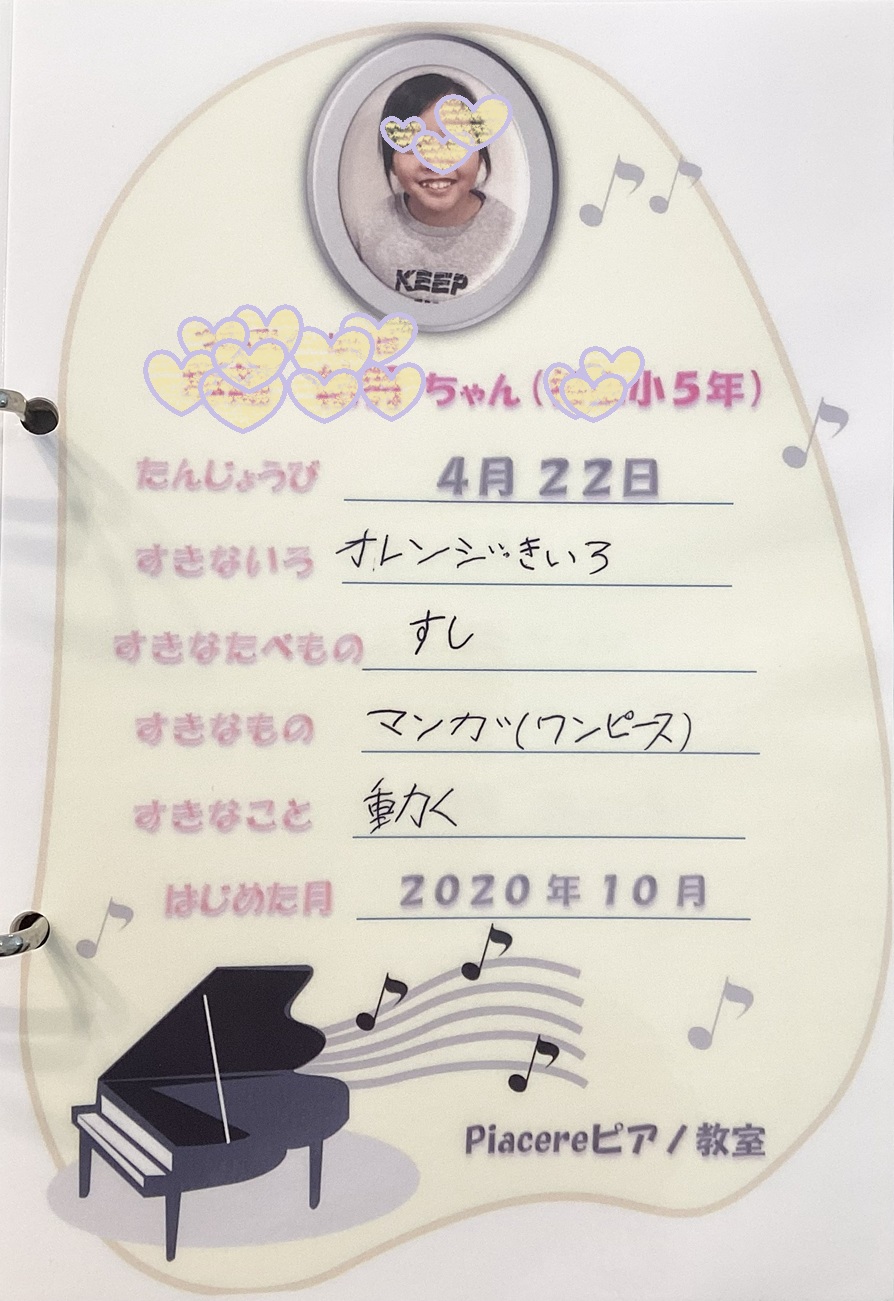 KEEP
ちゃん(小5年)
たんじょうび 4月22日
すきないろ オレンジ・きいろ
すきなたべもの すし
すきなもの マンガ(ワンピース)
すきなこと 動く
はじめた月 2020年10月
Piacereピアノ教室